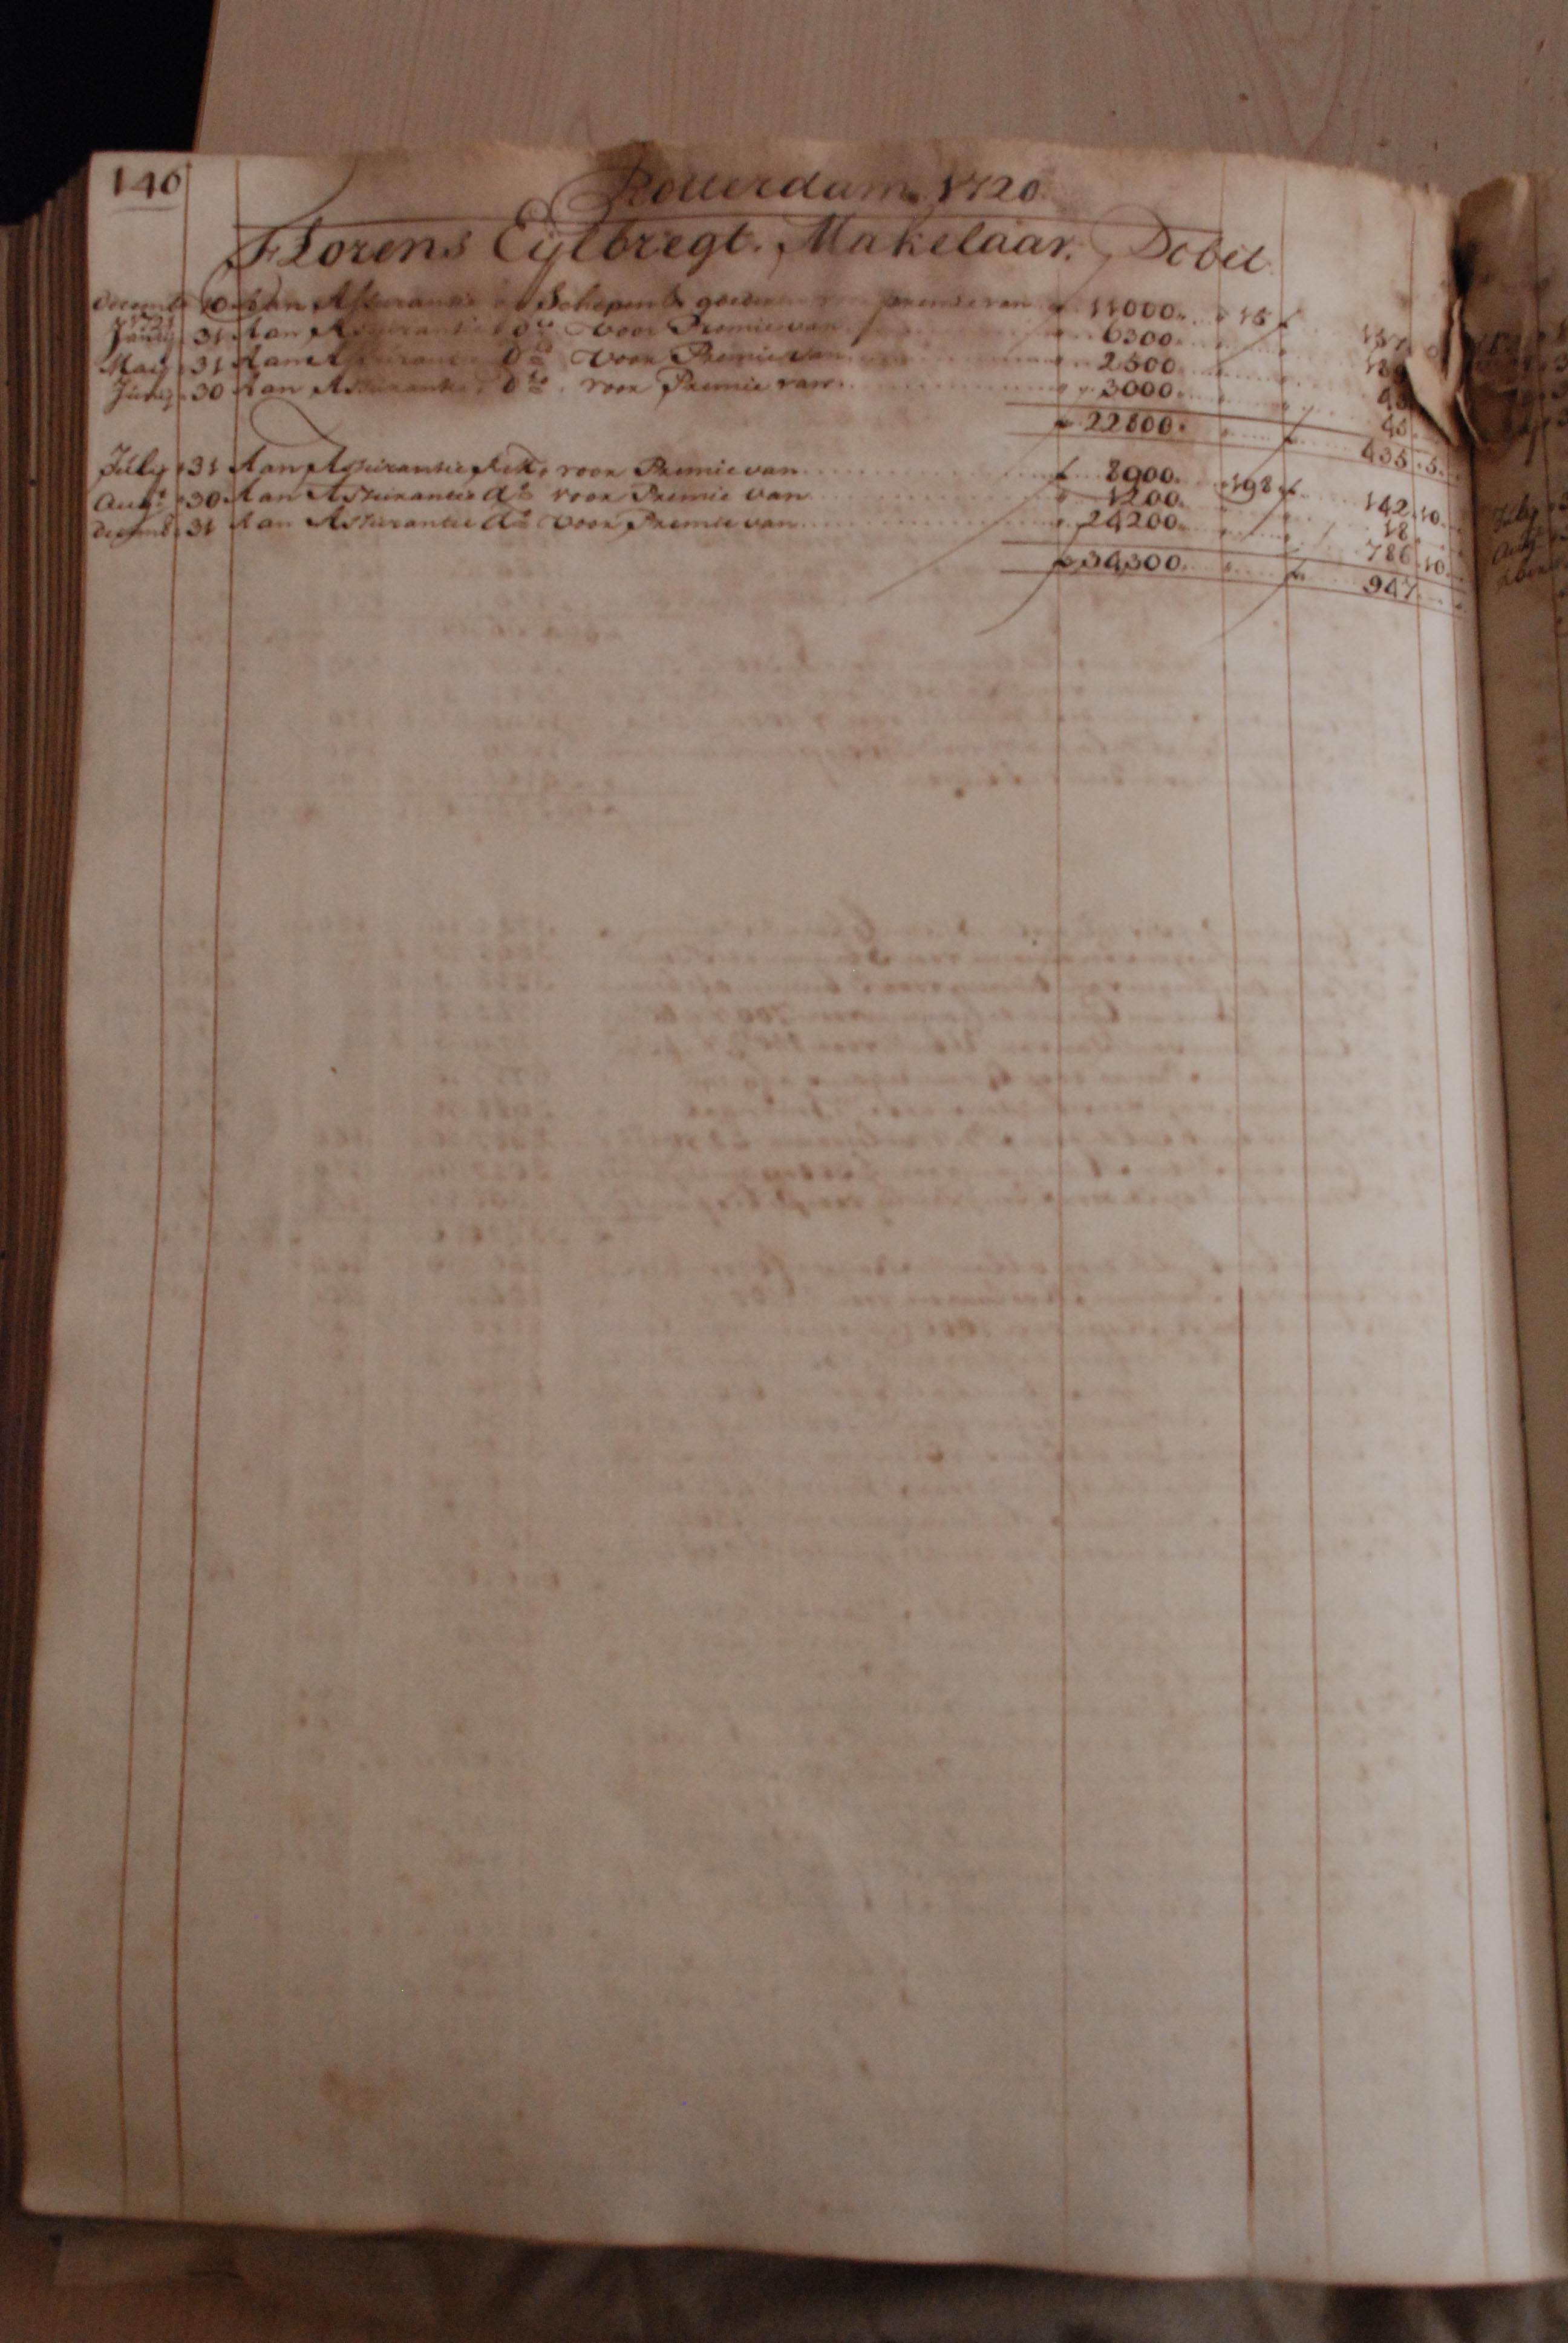 146
Rotterdam 1720
Florens Eijlbregt. Makelaar. Debet
Decemb 10 Aan Assurantie Schepen & goederen premie van 11000. 15 f 157
1721
Janrij 31 Aan Assurantie do voor Premie van 6300.
Maij 31 Aan Assurantie do voor Premie van 2500.
Junij 30 Aan Assurantie do voor Premie van 3000. 45
f 22800. f 435.5.
Julij 31 Aan Assurantie Rek voor Premie van f 8900. 198 f 142.10.
Augt 30 Aan Assurantie do voor Premie van 1200. 18.
decemb 31 Aan Assurantie do voor Premie van 24200. 786.10.
f 34300. f 947.
July
Aug